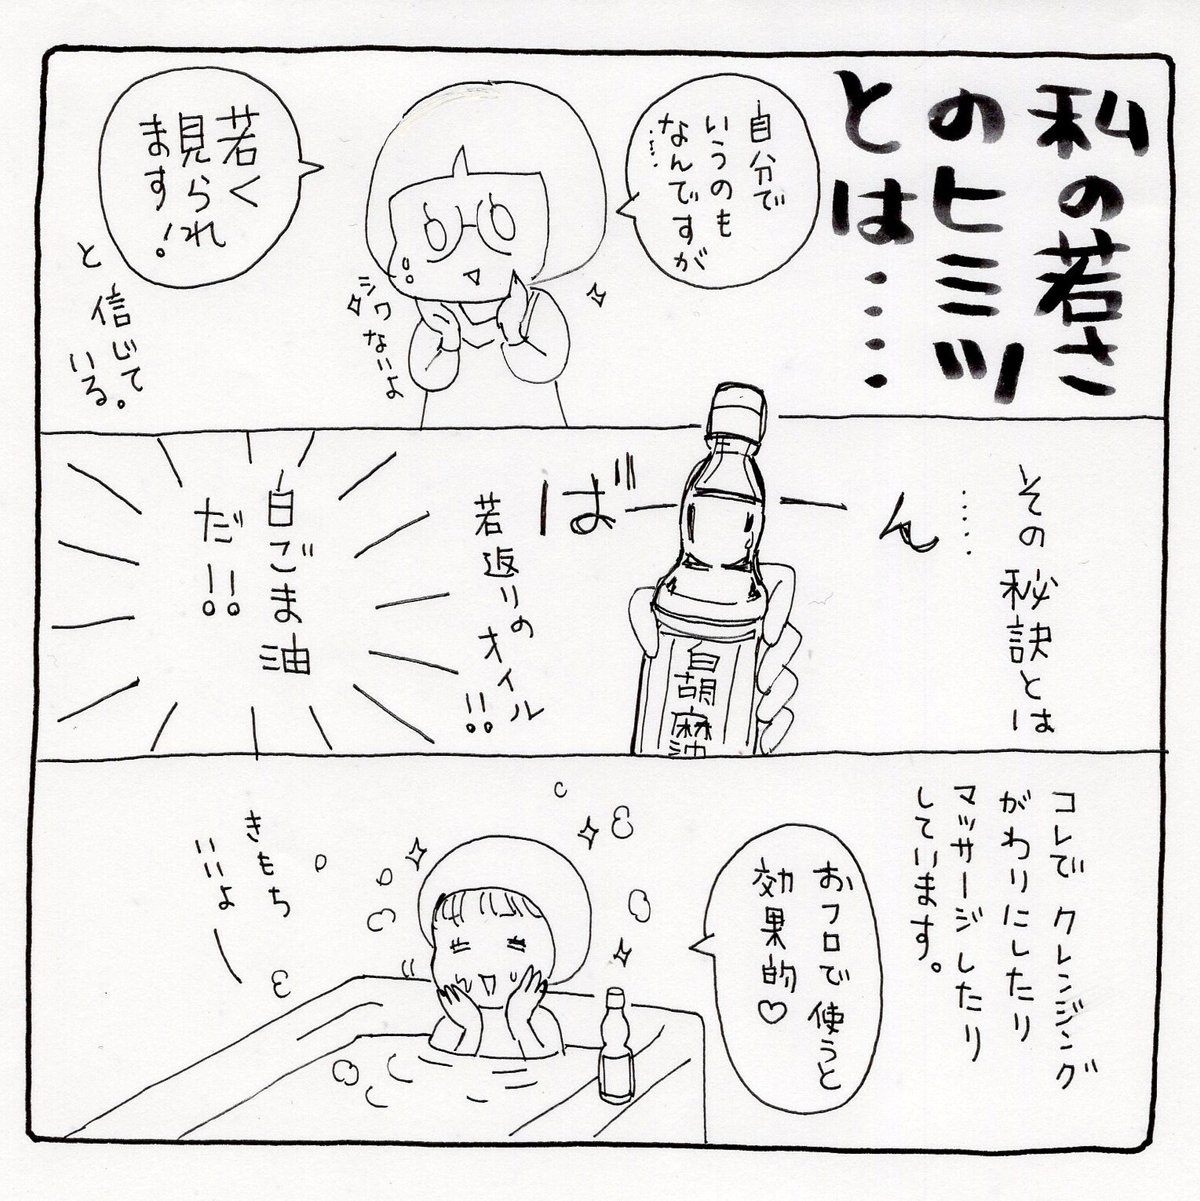 私の若さ
のヒミツ
とは・・・・
自分で
いうのも
なんですが
……
若く
見られ
ます!
シワ
ないよ
と信じて
いる。
その秘訣とは
……
ば――ん
白胡麻油
若返りの
オイル!!
白ごま油
だ!!
コレでクレンジング
がわりにしたり
マッサージしたり
しています。
おフロで使うと
効果的♡
きもち
いいよー